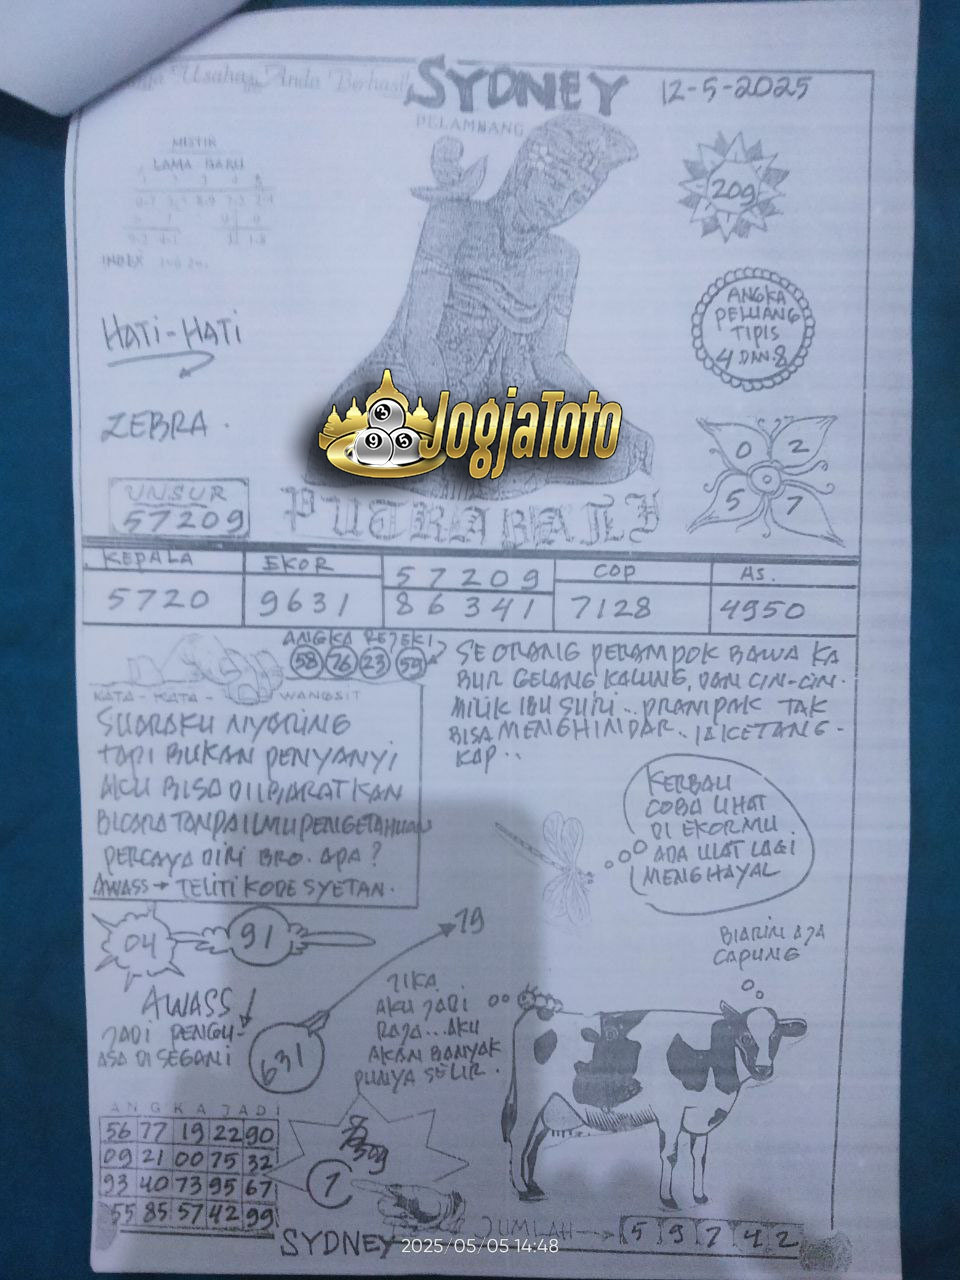 Usaha Anda Berhasil
SYDNEY
12-5-2025
PELAMBANG
MISTIK
LAMA BARU
INDEX
209
ANGKA
PELUANG
TIPIS
4 DAN 8
HATI-HATI
ZEBRA.
JogjaToto
3
9 5
0 2
5 7
UNSUR
57209
PUTRA BALI
KEPALA EKOR 57209 COP AS.
5720 9631 86341 7128 4950
ANGKA REJEKI
58 76 23 59
KATA-KATA- WANGSIT
SUARAKU NYARING
TAPI BUKAN PENYANYI
AKU BISA DIIBARATKAN
BICARA TANPA ILMU PENGETAHUAN
PERCAYA DIRI BRO. APA?
AWASS→ TELITI KODE SYETAN.
SEORANG PERAMPOK BAWA KA
BUR GELANG KALUNG, DAN CIN-CIN.
MILIK IBU SURI.. PRAMPAK TAK
BISA MENGHINDAR. IA KETANG-
KAP..
KERBAU
COBA LIHAT
DI EKORMU.
ADA ULAT LAGI
MENGHAYAL
04 91
19
BIARIN AJA
CAPUNG
AWASS!
JADI PENGU-
ASA DI SEGANI
631
JIKA
AKU JADI
RAJA...AKU
AKAN BANYAK
PUNYA SELIR.
ANGKA JADI
56 77 19 22 90
09 21 00 75 32
93 40 73 95 67
55 85 57 42 99
7
JUMLAH→ 5 9 7 4 2
SYDNEY
2025/05/05 14:48